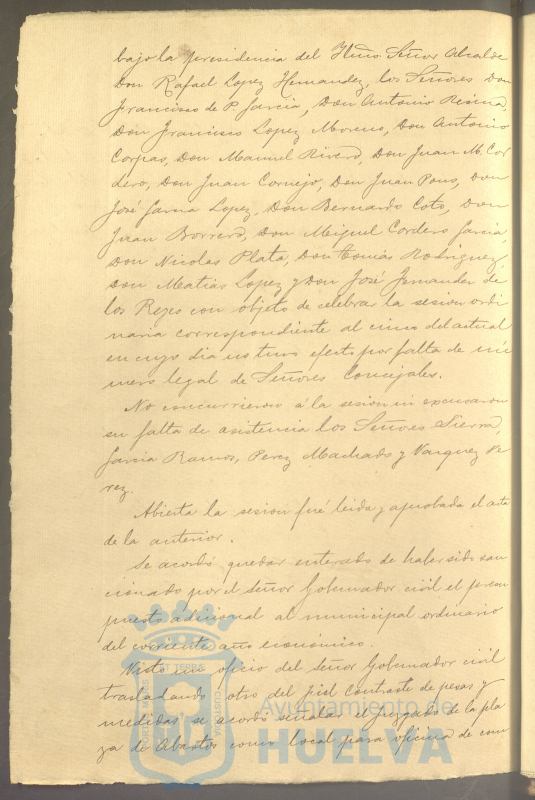 bajo la presidencia del Yltmo Señor Alcalde
Don Rafael Lopez Hernandez, los Señores Don
Francisco de P. Garcia, Don Antonio Resina,
Don Francisco Lopez Moreno, Don Antonio
Corpas, Don Manuel Rivero, Don Juan M. Cor
dero, Don Juan Cornejo, Don Juan Pons, Don
José Garcia Lopez, Don Bernardo Coto, Don
Juan Borrero, Don Miguel Cordero Garcia,
Don Nicolas Plata, Don Tomás Rodriguez,
Don Matias Lopez y Don José Fernandez de
los Reyes con objeto de celebrar la sesion ordi
naria correspondiente al cinco del actual
en cuyo dia no tuvo efecto por falta de nú
mero legal de Señores Concejales.
No concurrieron á la sesion ni excusaron
su falta de asistencia los Señores Sierra,
Garcia Ramos, Perez Machado y Vazquez Pe
rez.
Abierta la sesion fué leida y aprobada el acta
de la anterior.
Se acordó quedar enterado de haber sido san
cionado por el Señor Gobernador civil el presu
puesto adicional al municipal ordinario
del corriente año económico.
Visto un oficio del Señor Gobernador civil
trasladando otro del fiel contraste de pesas y
medidas se acordó señalar el Juzgado de la pla
za de Abastos como local para oficina de com
Ayuntamiento de
HUELVA